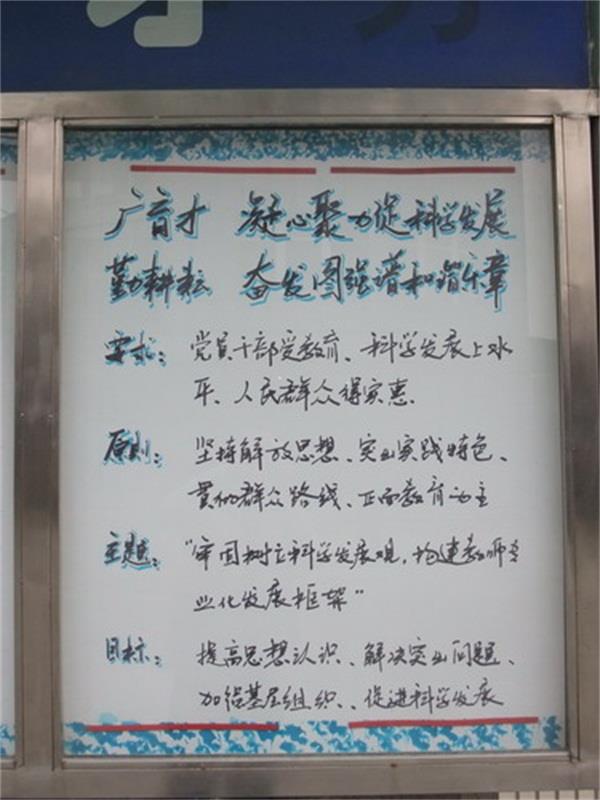 广育才 凝心聚力促科学发展
勤耕耘 奋发图强谱和谐乐章
要求：党员干部受教育、科学发展上水
平、人民群众得实惠.
原则：坚持解放思想、突出实践特色、
贯彻群众路线、正面教育为主
主题："牢固树立科学发展观，构建教师专
业化发展框架"
目标：提高思想认识、解决突出问题、
加强基层组织、促进科学发展